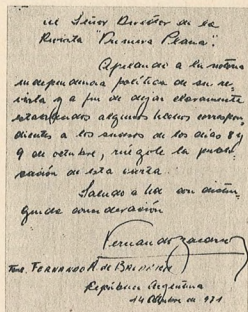 al Señor Director de la
Revista "Primera Plana".
Apelando a la notoria
independencia política de su re-
vista y a fin de dejar claramente
establecidos algunos hechos correspon-
dientes a los sucesos de los días 8 y
9 de octubre, ruégole la publi-
cación de esta carta.
Saludo a Ud con distin-
guida consideración
Fernando
FERNANDO A. de
República Argentina
14 Octubre de 971